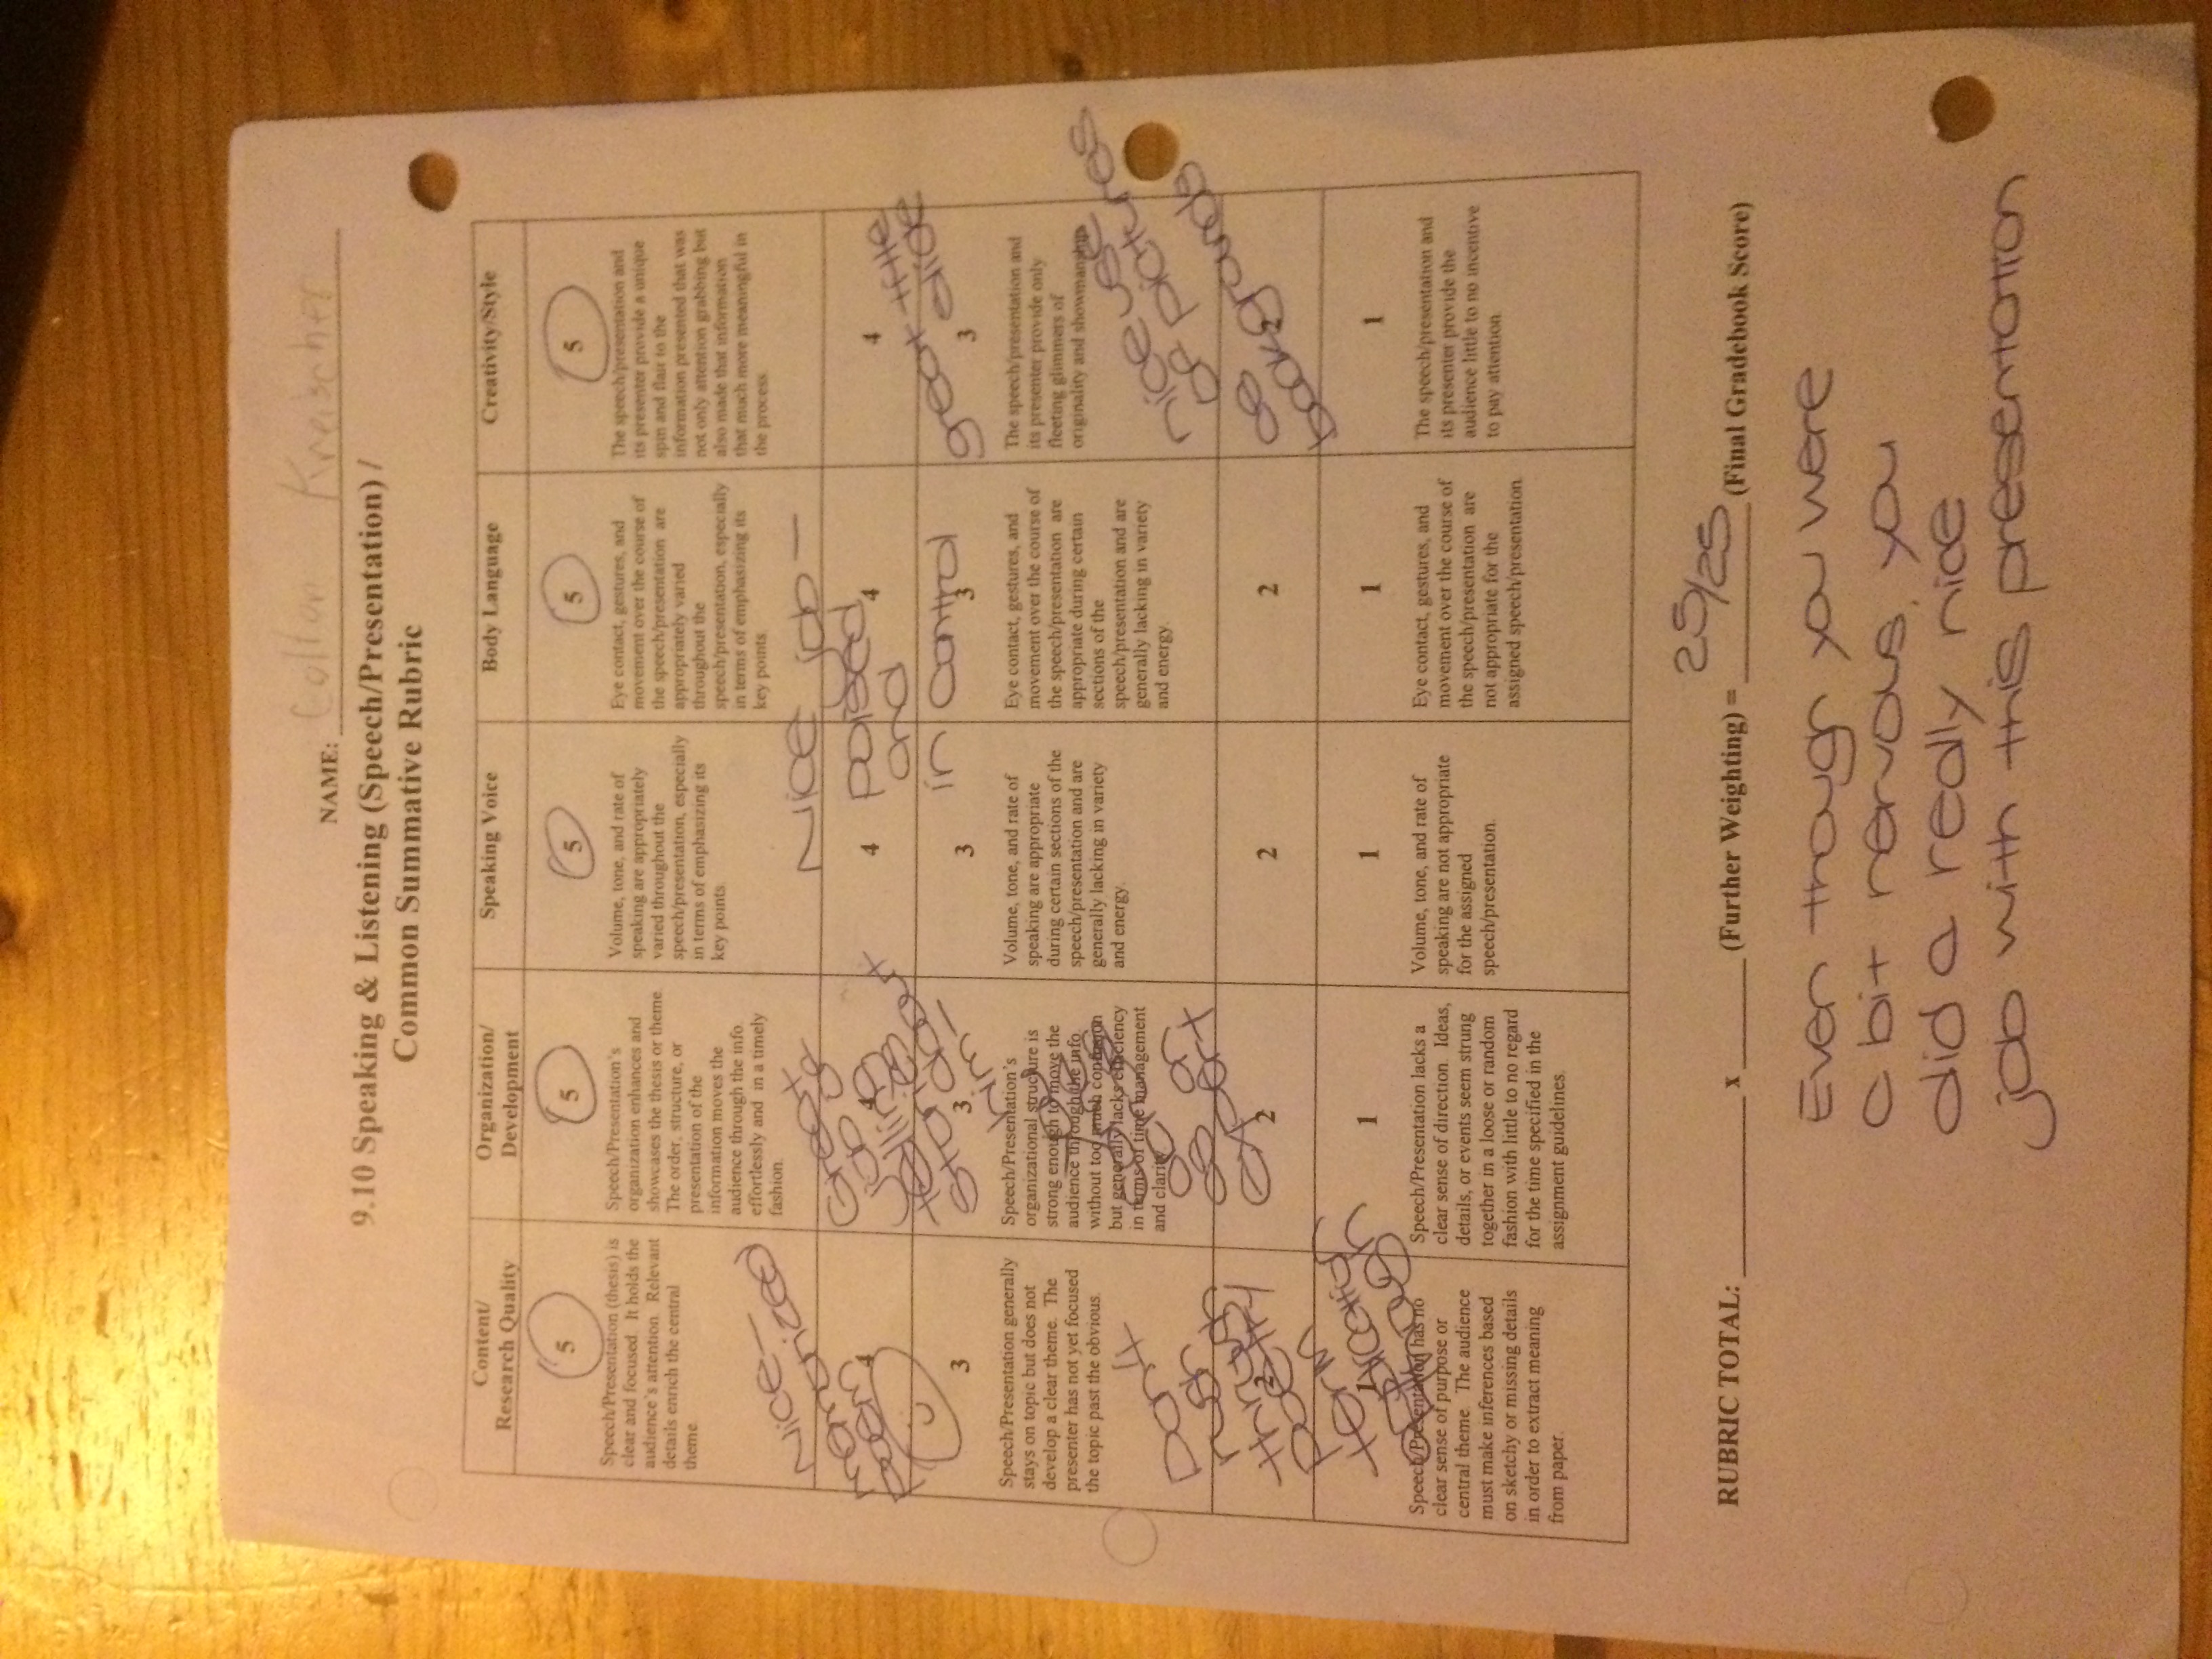 NAME: Colton Kreischer
9.10 Speaking & Listening (Speech/Presentation) /
Common Summative Rubric
Content/
Research Quality
Organization/
Development
Speaking Voice
Body Language
Creativity/Style
5
Speech/Presentation (thesis) is
clear and focused. It holds the
audience's attention. Relevant
details enrich the central
theme.
Nice-
memorized
poem
5
Speech/Presentation's
organization enhances and
showcases the thesis or theme.
The order, structure, or
presentation of the
information moves the
audience through the info.
effortlessly and in a timely
fashion.
Great
job of
telling
stories
about
him-
5
Volume, tone, and rate of
speaking are appropriately
varied throughout the
speech/presentation, especially
in terms of emphasizing its
key points.
5
Eye contact, gestures, and
movement over the course of
the speech/presentation are
appropriately varied
throughout the
speech/presentation, especially
in terms of emphasizing its
key points.
Nice job-
poised
and
in control
5
The speech/presentation and
its presenter provide a unique
spin and flair to the
information presented that was
not only attention grabbing but
also made that information
that much more meaningful in
the process.
4
4
4
4
4
great title
slide
3
Speech/Presentation generally
stays on topic but does not
develop a clear theme. The
presenter has not yet focused
the topic past the obvious.
Don't
rush
through
poetry
term
explication
though
3
Speech/Presentation's
organizational structure is
strong enough to move the
audience through the info.
without too much confusion
but generally lacks efficiency
in terms of time management
and clarity.
across
as an
expert
3
Volume, tone, and rate of
speaking are appropriate
during certain sections of the
speech/presentation and are
generally lacking in variety
and energy.
3
Eye contact, gestures, and
movement over the course of
the speech/presentation are
appropriate during certain
sections of the
speech/presentation and are
generally lacking in variety
and energy.
3
The speech/presentation and
its presenter provide only
fleeting glimmers of
originality and showmanship.
nice use
of pictures
as
backgrounds
2
2
2
2
2
1
Speech/Presentation has no
clear sense of purpose or
central theme. The audience
must make inferences based
on sketchy or missing details
in order to extract meaning
from paper.
1
Speech/Presentation lacks a
clear sense of direction. Ideas,
details, or events seem strung
together in a loose or random
fashion with little to no regard
for the time specified in the
assignment guidelines.
1
Volume, tone, and rate of
speaking are not appropriate
for the assigned
speech/presentation.
1
Eye contact, gestures, and
movement over the course of
the speech/presentation are
not appropriate for the
assigned speech/presentation.
1
The speech/presentation and
its presenter provide the
audience little to no incentive
to pay attention.
RUBRIC TOTAL: x (Further Weighting) = 25/25 (Final Gradebook Score)
Even though you were
a bit nervous, you
did a really nice
job with this presentation